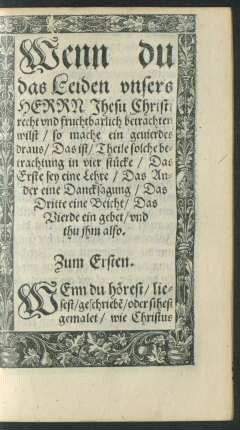 Wenn du
das Leiden vnsers
HERRN Jhesu Christi
recht vnd fruchtbarlich betrachten
wilst / so mache ein gevierdes
draus / Das ist / Theile solche be-
trachtung in vier stücke / Das
Erste sey eine Lehre / Das An-
der eine Dancksagung / Das
Dritte eine Beicht / Das
Vierde ein gebet / vnd
thu jhm also.
Zum Ersten.
WEnn du hörest / lie-
sest / geschriebē / oder sihest
gemalet / wie Christus